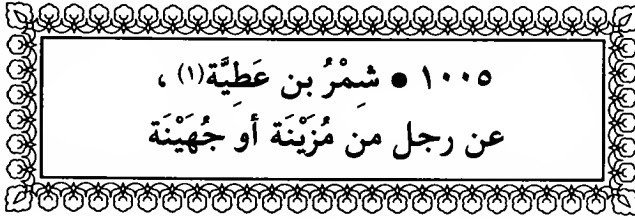 ١٠٠٥ ● شِمْرُ بن عَطِيَّة(١) ،
عن رجل من مُزَيْنَة أو جُهَيْنَة